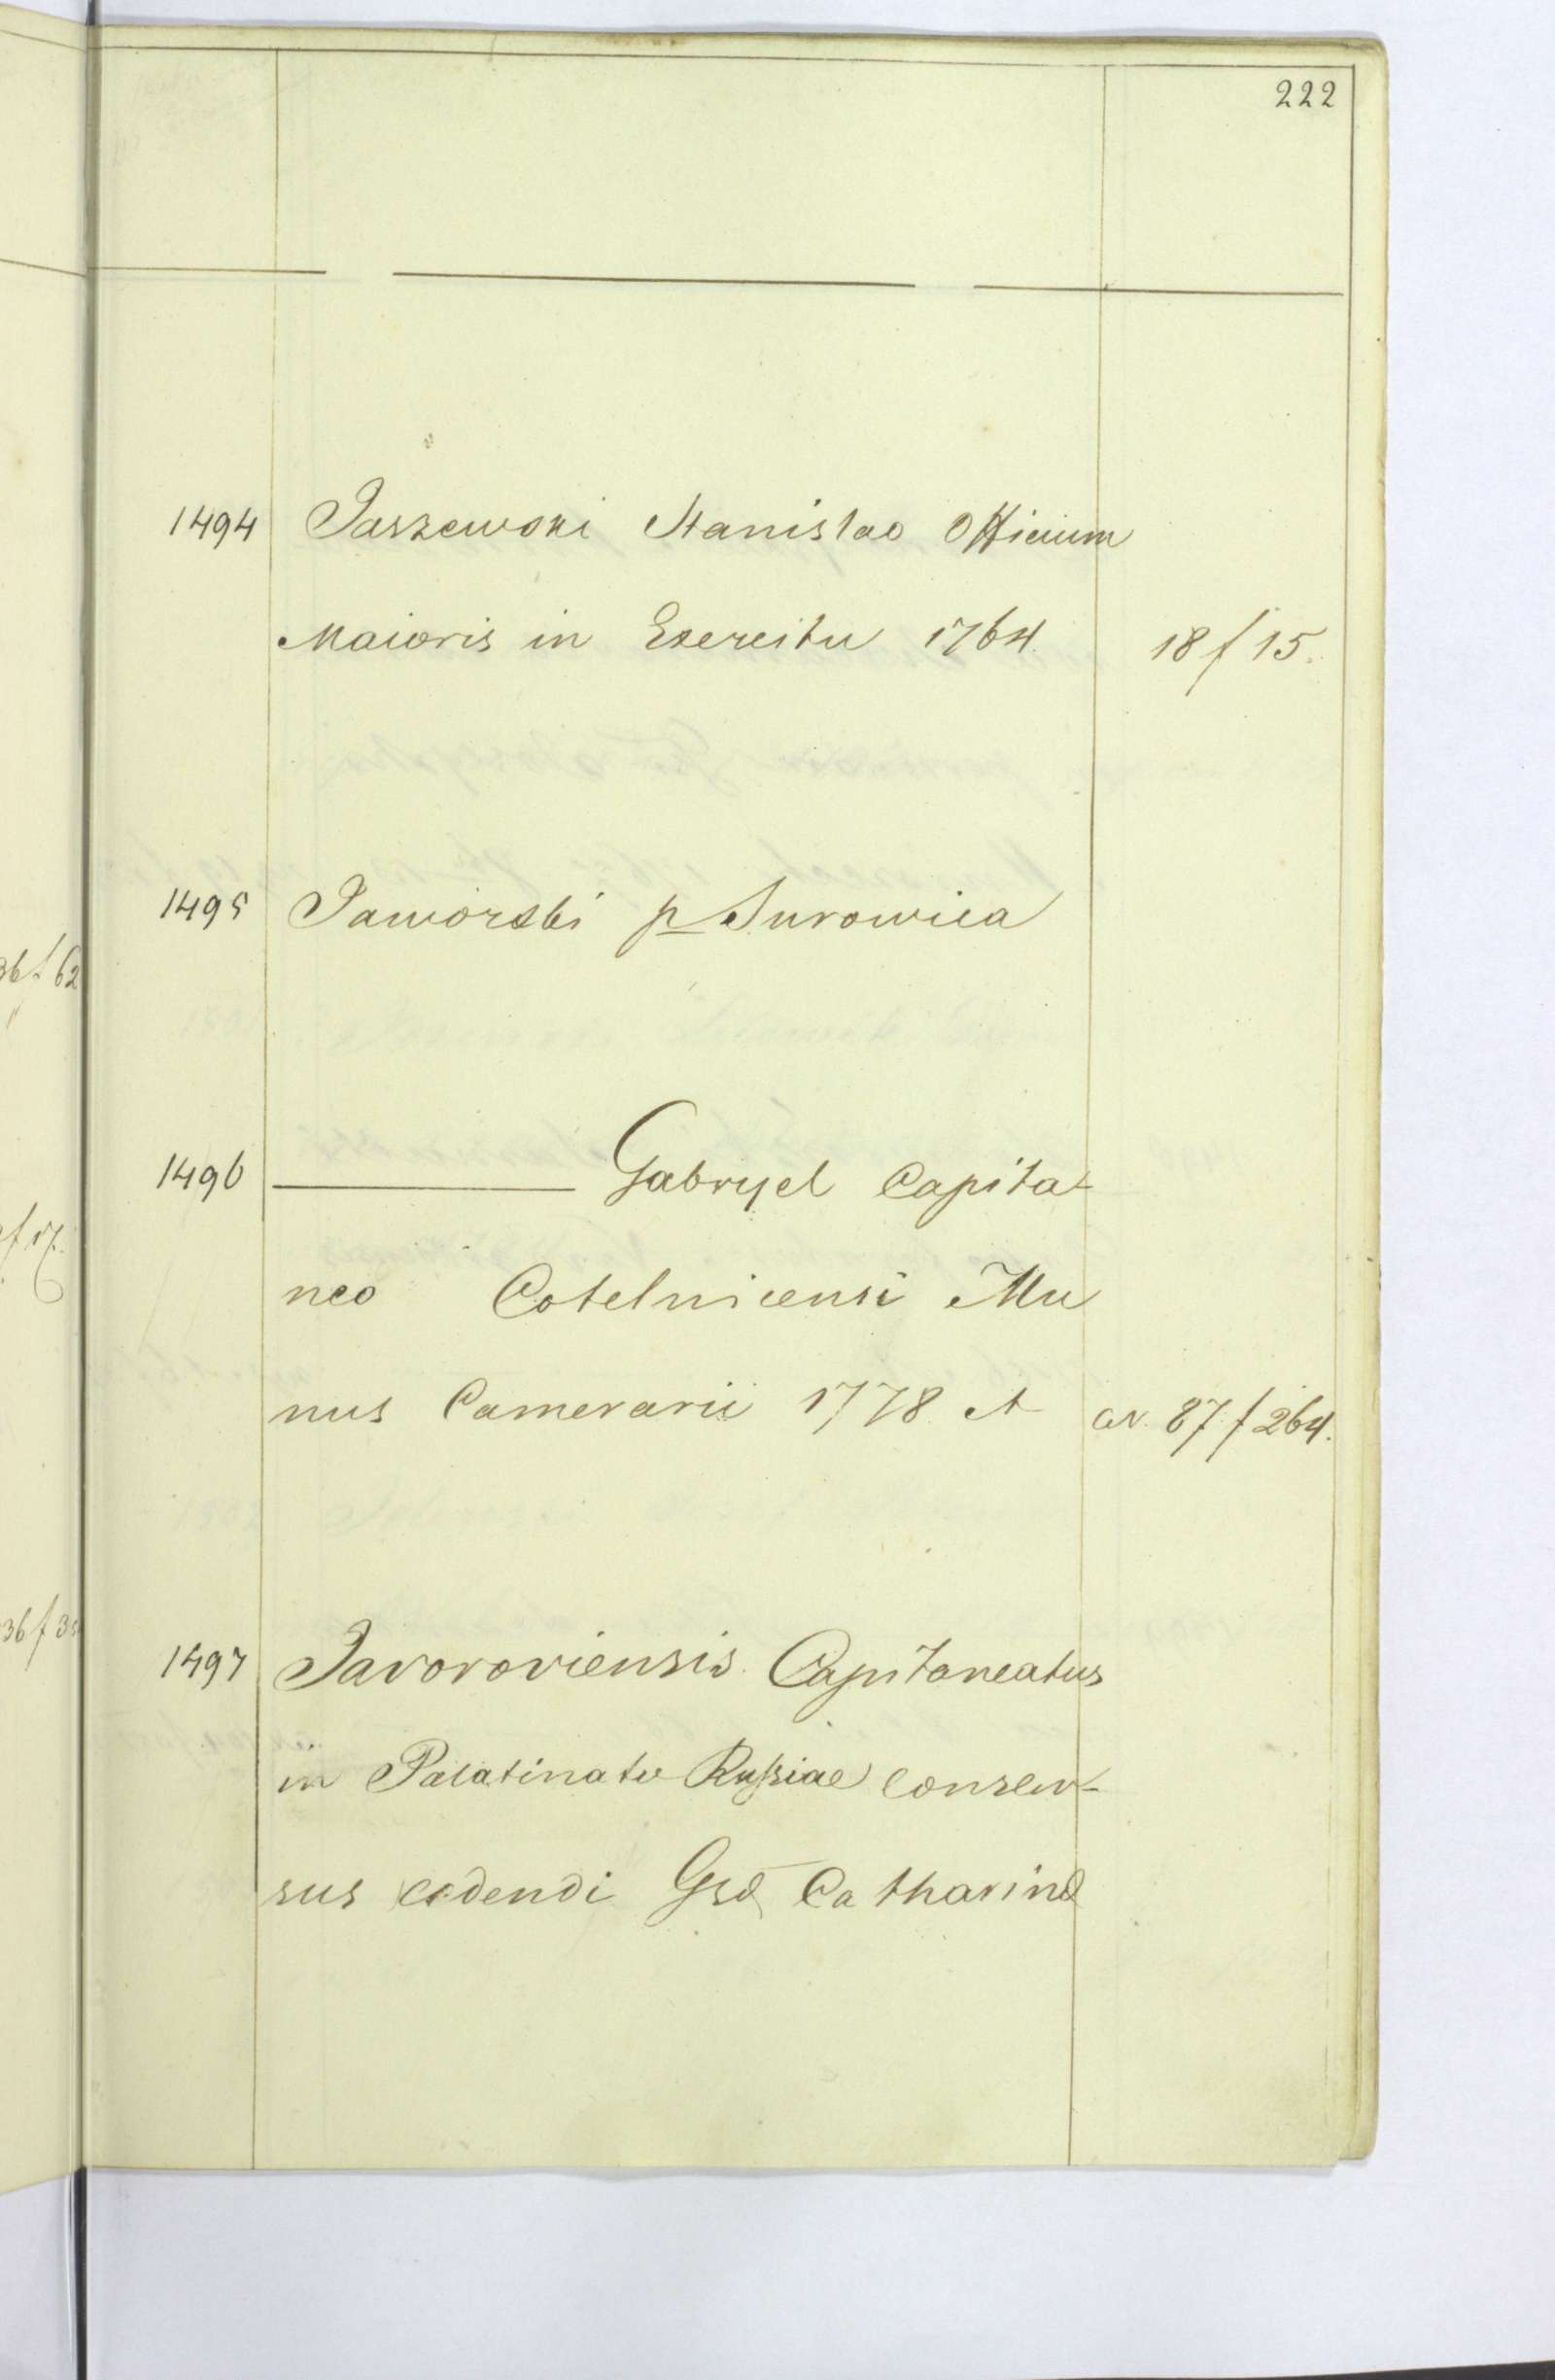 222
1494 Jaszewski Stanislao Officium
Maioris in Exercitu 1764. 18 f 15.
1495 Jaworski p Surowica
1496 ——— Gabryel Capita-
neo Cotelnicensi Mu
nus Camerarii 1778 A 87 f 264.
1497 Javoroviensis Capitaneatus
in Palatinatu Russiae consen-
sus cedendi Gsd Catharina
36 f 62
36 f 3